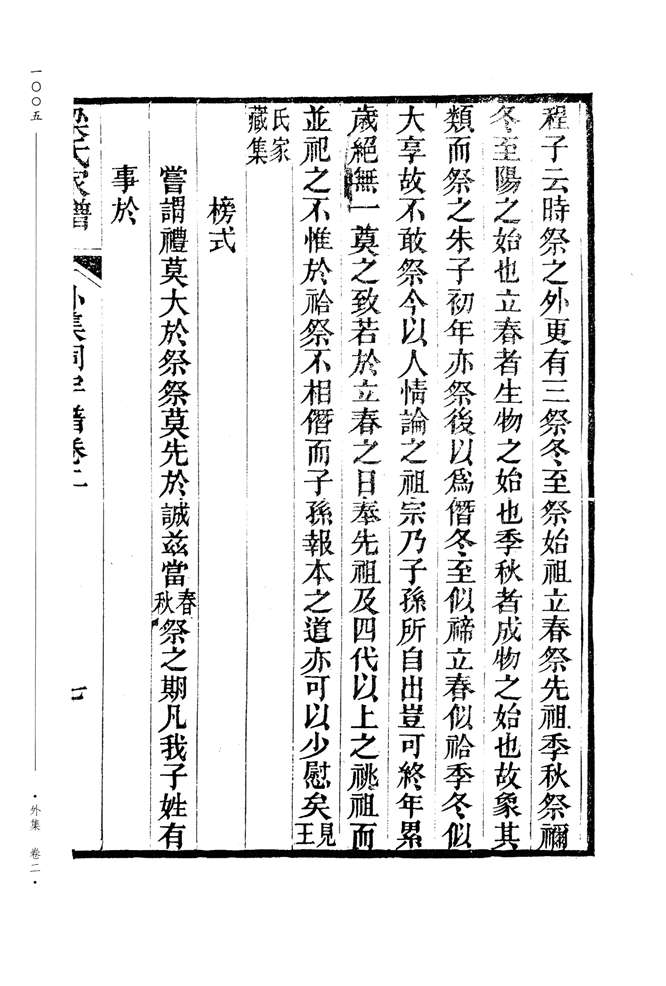 程子云時祭之外更有三祭冬至祭始祖立春祭先祖季秋祭禰
冬至陽之始也立春者生物之始也季秋者成物之始也故象其
類而祭之朱子初年亦祭後以為僭冬至似禘立春似祫季冬似
大享故不敢祭今以人情論之祖宗乃子孫所自出豈可終年累
歲絕無一奠之致若於立春之日奉先祖及四代以上之祧祖而
並祀之不惟於祫祭不相僭而子孫報本之道亦可以少慰矣見王
氏家藏集
榜式
嘗謂禮莫大於祭祭莫先於誠茲當春秋祭之期凡我子姓有
事於
氏家譜
外集祠宇譜卷二
七
一〇〇五
·外集 卷二·